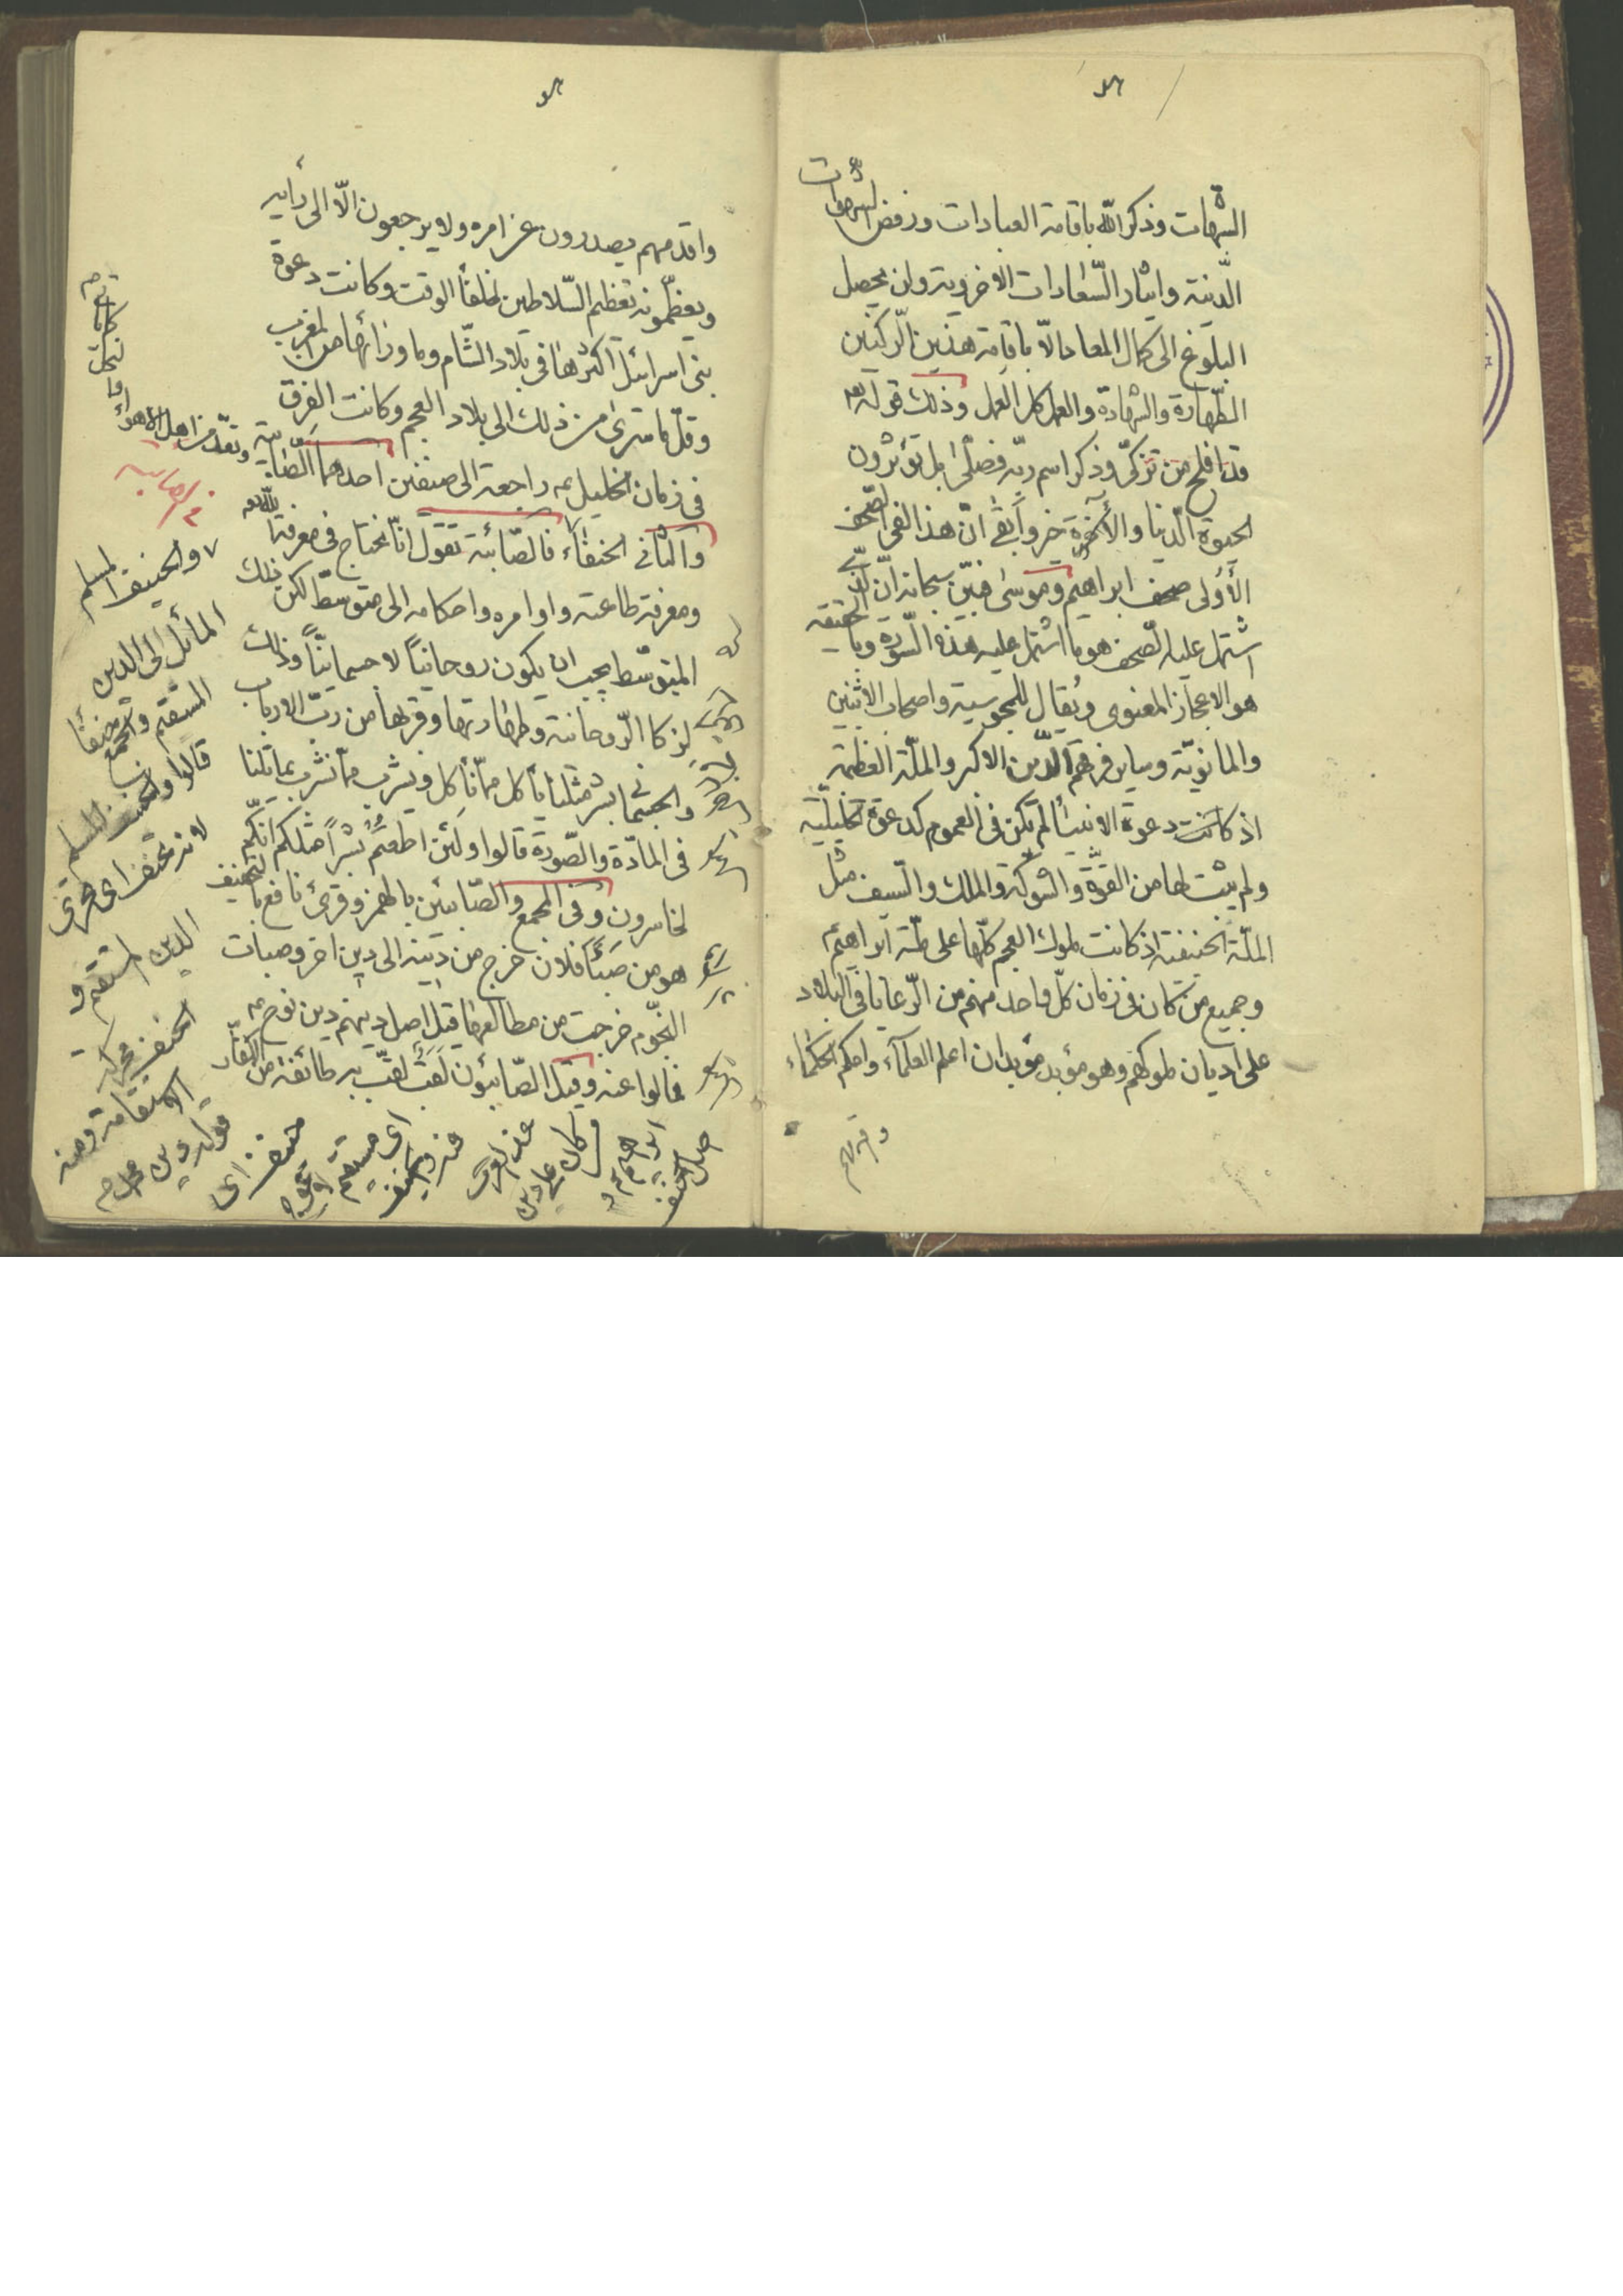 الشبهات وذكر الله باقامة العبادات ورفض الشهوات
الدّنيّة وايثار السّعادات الاخرويّة ولن يحصل
البلوغ الى كمال المعاد الّا باقامة هذين الرّكنين
الطّهارة والشهادة والعمل كل العمل وذلك قوله تعه
قد افلح من تزكّى وذكر اسم ربّه فصلّى بل تؤثرون
الحيوة الدّنيا والآخرة خير وأبقى انّ هذا لفى الصّحف
الأولى صحف ابراهيم وموسى فبيّن سبحانه انّ الّذى
اشتمل عليه الصّحف هو ما اشتمل عليه هذه السّورة وبالحقيقة
هو الاعجاز المعنوى ويقال للمجوسية واصحاب الاثنين
والمانويّة وساير فرقهم الدّين الاكبر والملّة العظيمة
اذ كانت دعوة الانبياء لم تكن فى العموم كدعوة الخليليّة
ولم يثبت لها من القوّة والشوكة والملك والسّيف مثل
الملّة الحنيفيّة اذ كانت ملوك العجم كلّها على ملّة ابراهيم
وجميع من كان فى زمان كلّ واحد منهم من الرّعايا فى البلاد
على اديان ملوكهم وهو مؤبد مؤبدان اعلم العلمآء واحكم الحكماء
واقدمهم يصدرون عن امره ولا يرجعون الّا الى رأيه
ويعظّمونه تعظيم السّلاطين لخلفاء الوقت وكانت دعوة
بنى اسرائيل اكثرها فى بلاد الشّام وما ورائها من المغرب
وقلّ ما سرى من ذلك الى بلاد العجم وكانت الفرق
فى زمان الخليل عه راجعة الى صنفين احدهما الصّابية
والثانى الحنفاء فالصّابئة تقول انّا نحتاج فى معرفة الله تعه
ومعرفة طاعته واوامره واحكامه الى متوسّط لكن ذلك
المتوسّط يجب ان يكون روحانيّاً لا جسمانيّاً وذلك
لزكا الرّوحانية وطهارتها وقربها من ربّ الارباب
والجسمانى بشر مثلنا يأكل ممّا نأكل ويشرب ممّا نشرب يماثلنا
فى المادّة والصّورة قالوا ولئن اطعتم بشراً مثلكم انّكم
لخاسرون وفى المجمع والصّابئين بالهمز وقرئ نافع بالتخفيف
هو من صبأ فلان خرج من دينه الى دين اخر وصبات
النّجوم خرجت من مطالعها قيل اصل دينهم دين نوح عه
فمالوا عنه وقيل الصّابئون لقب لقّب به طائفة من الكفّار
والحنيف المسلم
المائل الى الدين
المستقيم والجمع حنفاء
قالوا والحنيف المسلم
لانه تحنّف اى تحرى
الدين المستقيم و
الحنف محركة
الاستقامة ومنه
قوله دين محمد ص
حنيف اى